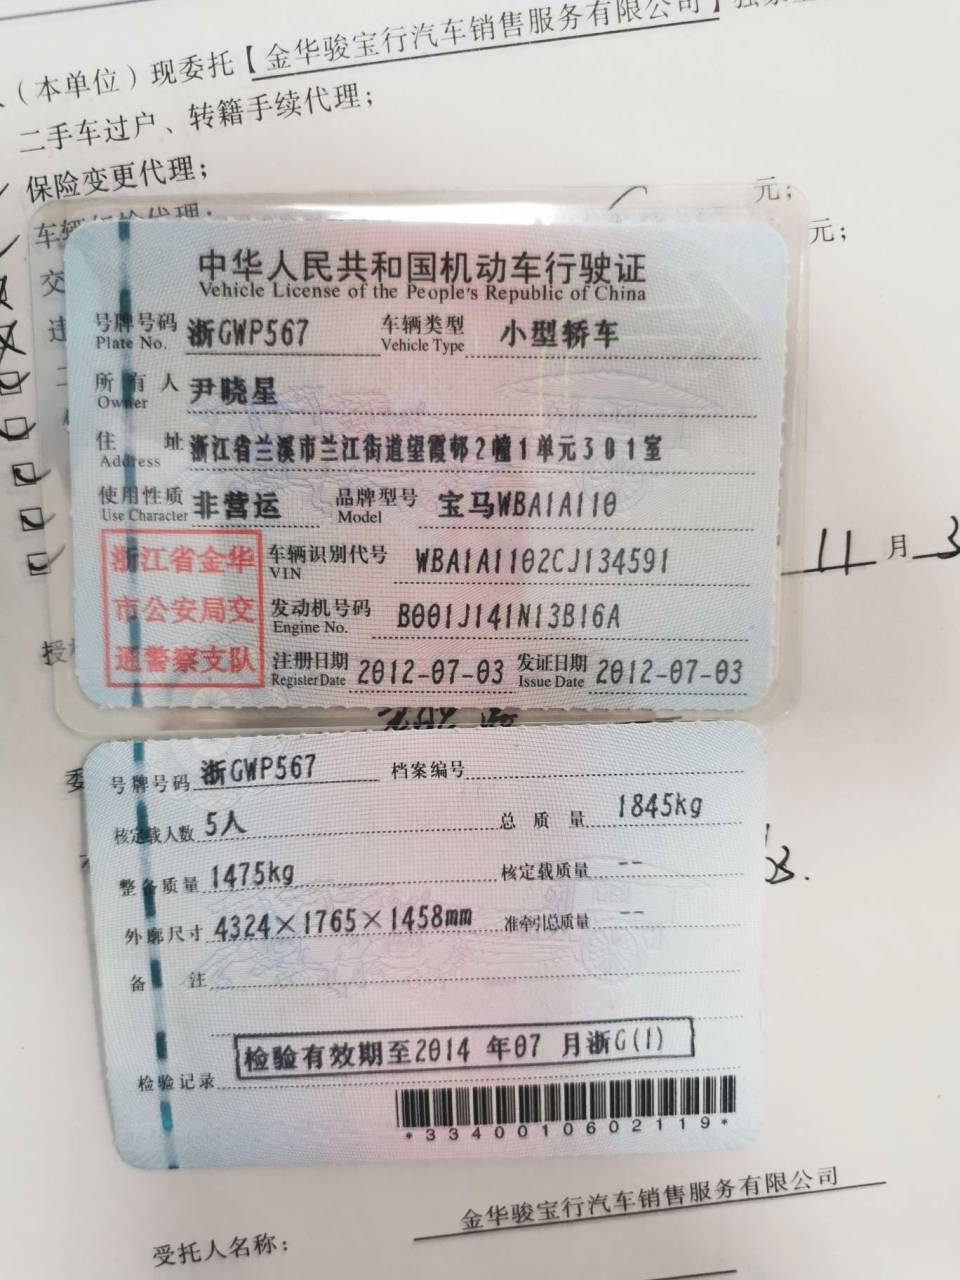 (本单位)现委托【金华骏宝行汽车销售服务有限公司】
二手车过户、转籍手续代理；
保险变更代理；
元；
元；
中华人民共和国机动车行驶证
Vehicle License of the People's Republic of China
号牌号码 浙GWP567 车辆类型 小型轿车
Plate No. Vehicle Type
所有人 尹晓星
Owner
住址 浙江省兰溪市兰江街道望霞邨2幢1单元301室
Address
使用性质 非营运 品牌型号 宝马WBA1A110
Use Character Model
浙江省金华
市公安局交
通警察支队
车辆识别代号 WBA1A1102CJ134591
VIN
发动机号码 B001J141N13B16A
Engine No.
注册日期 2012-07-03 发证日期 2012-07-03
Register Date Issue Date
11月3
号牌号码 浙GWP567 档案编号
核定载人数 5人 总质量 1845kg
整备质量 1475kg 核定载质量 --
外廓尺寸 4324×1765×1458mm 准牵引总质量 --
备注
检验有效期至2014 年07 月浙G(1)
检验记录
*3340010602119*
受托人名称： 金华骏宝行汽车销售服务有限公司